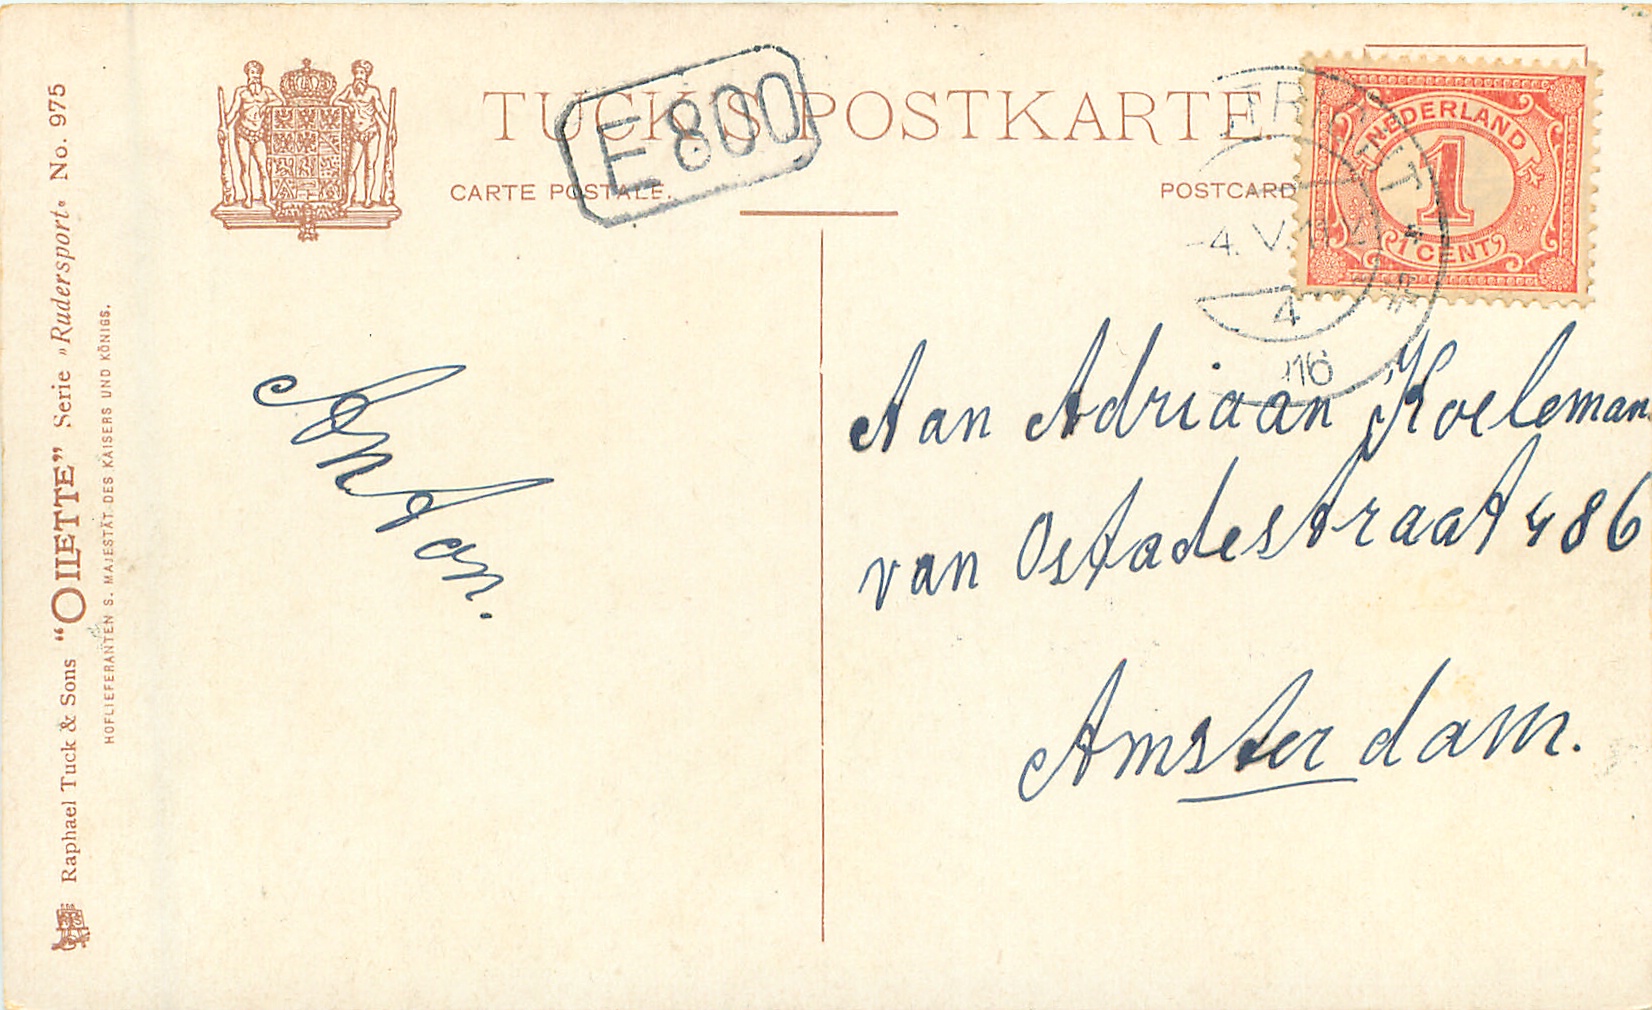 TUCK'S POSTKARTE
E 800
CARTE POSTALE.
POSTCARD
NEDERLAND
1
1 CENT
-4. V.
4
Raphael Tuck & Sons “OILETTE” Serie »Rudersport« No. 975
HOFLIEFERANTEN S. MAJESTÄT DES KAISERS UND KÖNIGS.
Anton.
Aan Adriaan Koeleman
van Ostadestraat 486
Amsterdam.